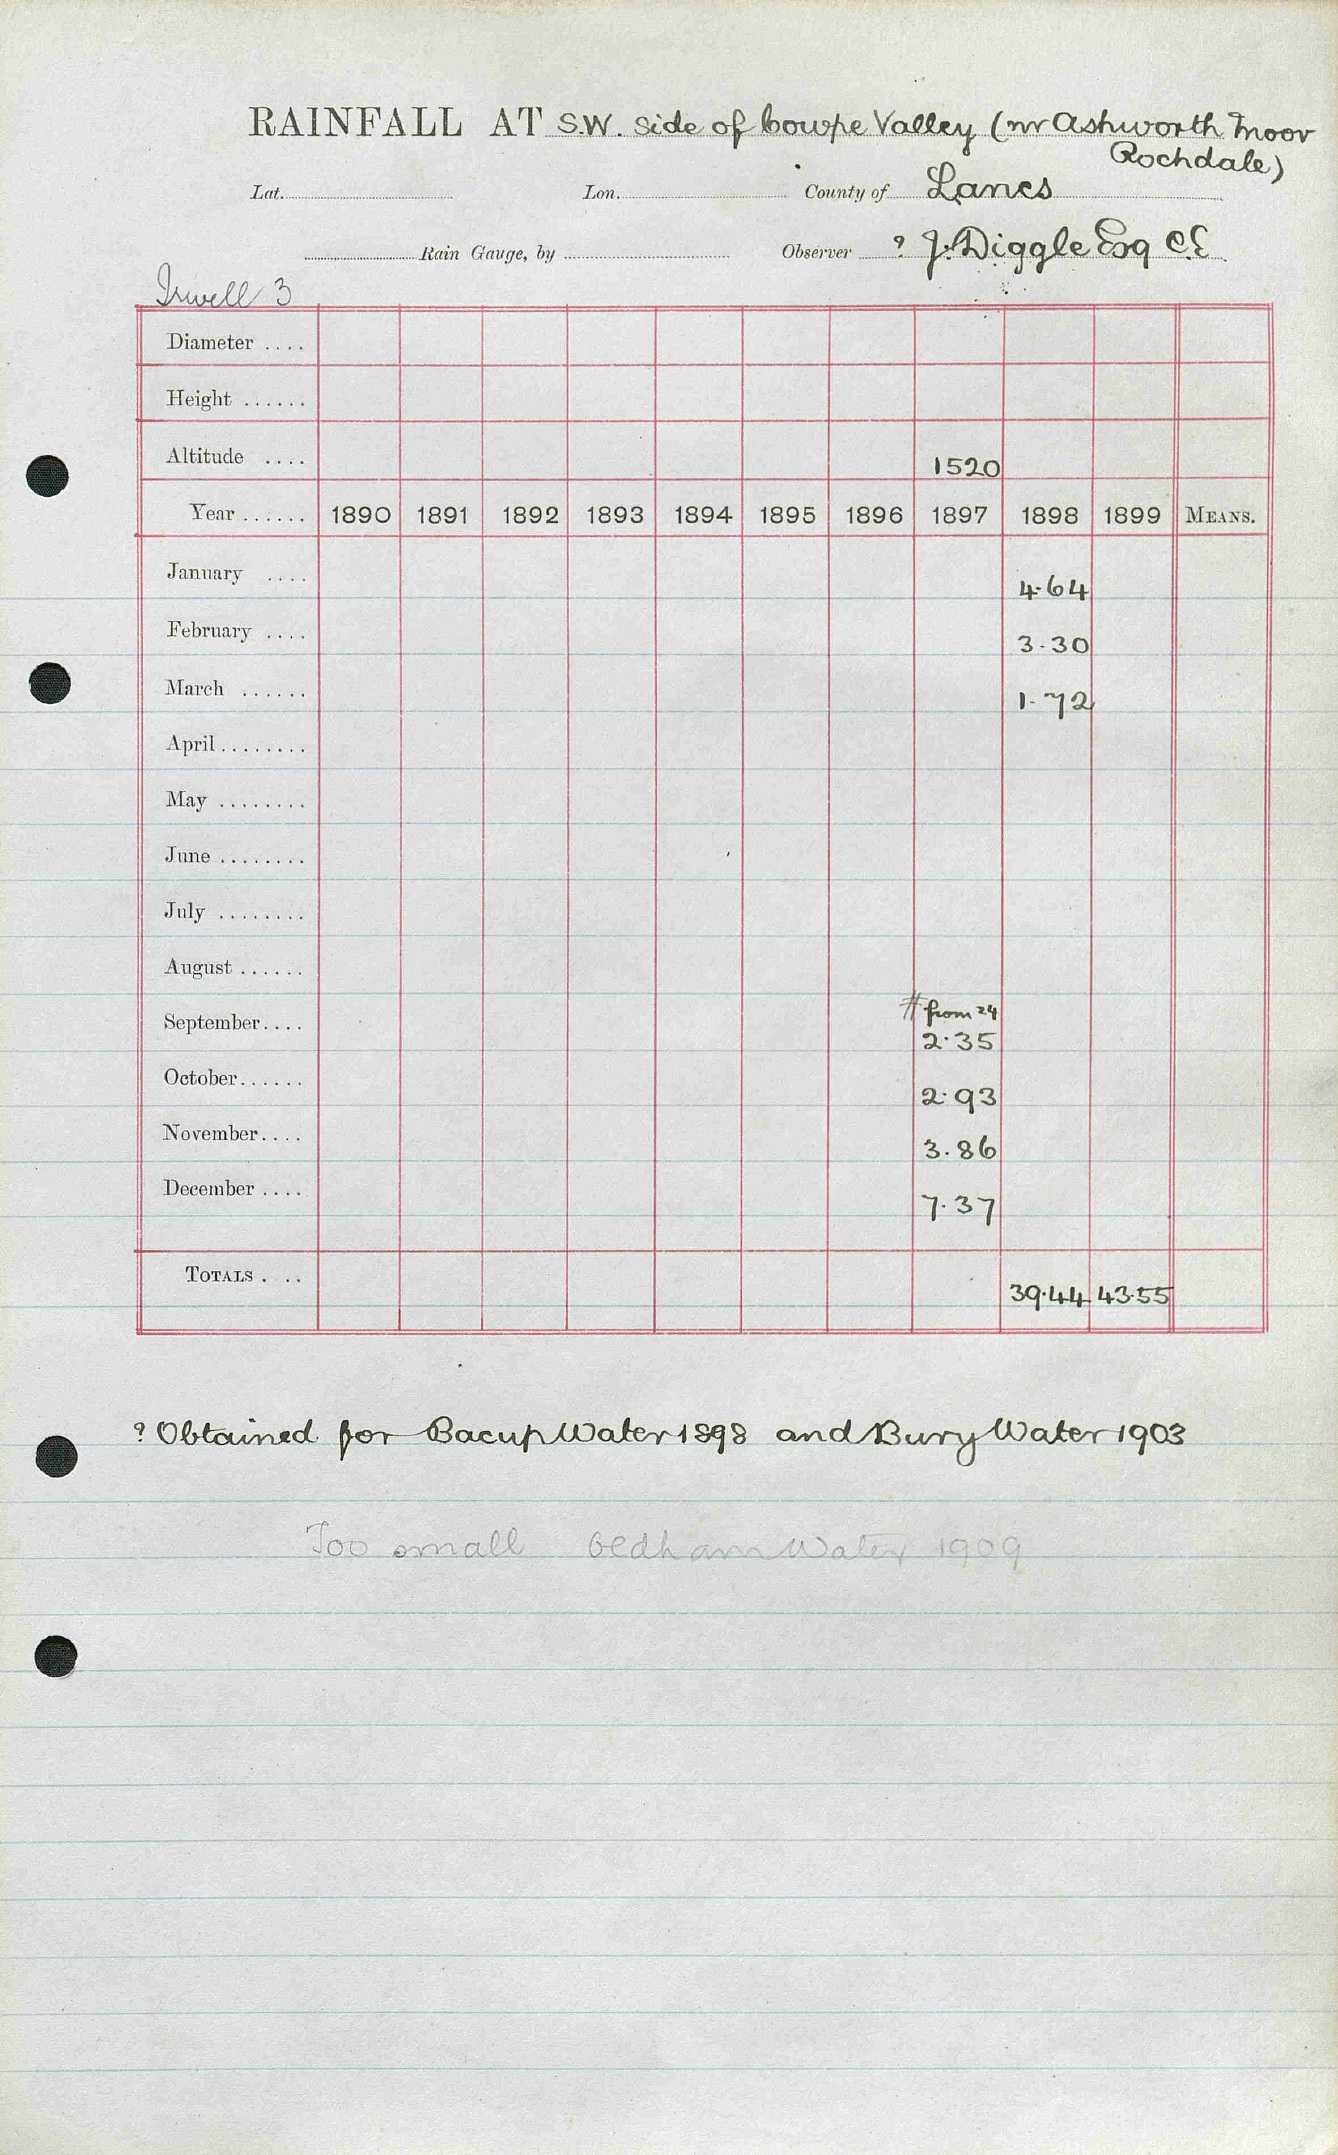 RAINFALL AT S.W. side of Cowpe Valley (nr Ashworth Moor
Rochdale)
Lat. Lon. County of Lancs
Rain Gauge, by Observer ? J. Diggle Esq C.E
Irwell 3
Diameter ....
Height ......
Altitude .... 1520
Year ...... 1890 1891 1892 1893 1894 1895 1896 1897 1898 1899 MEANS.
January .... 4.64
February .... 3.30
March ...... 1.72
April ........
May ........
June ........
July ........
August ......
# from 24
September.... 2.35
October...... 2.93
November.... 3.86
December .... 7.37
TOTALS . .. 39.44 43.55
? Obtained for Bacup Water 1898 and Bury Water 1903
Too small Oldham Water 1909